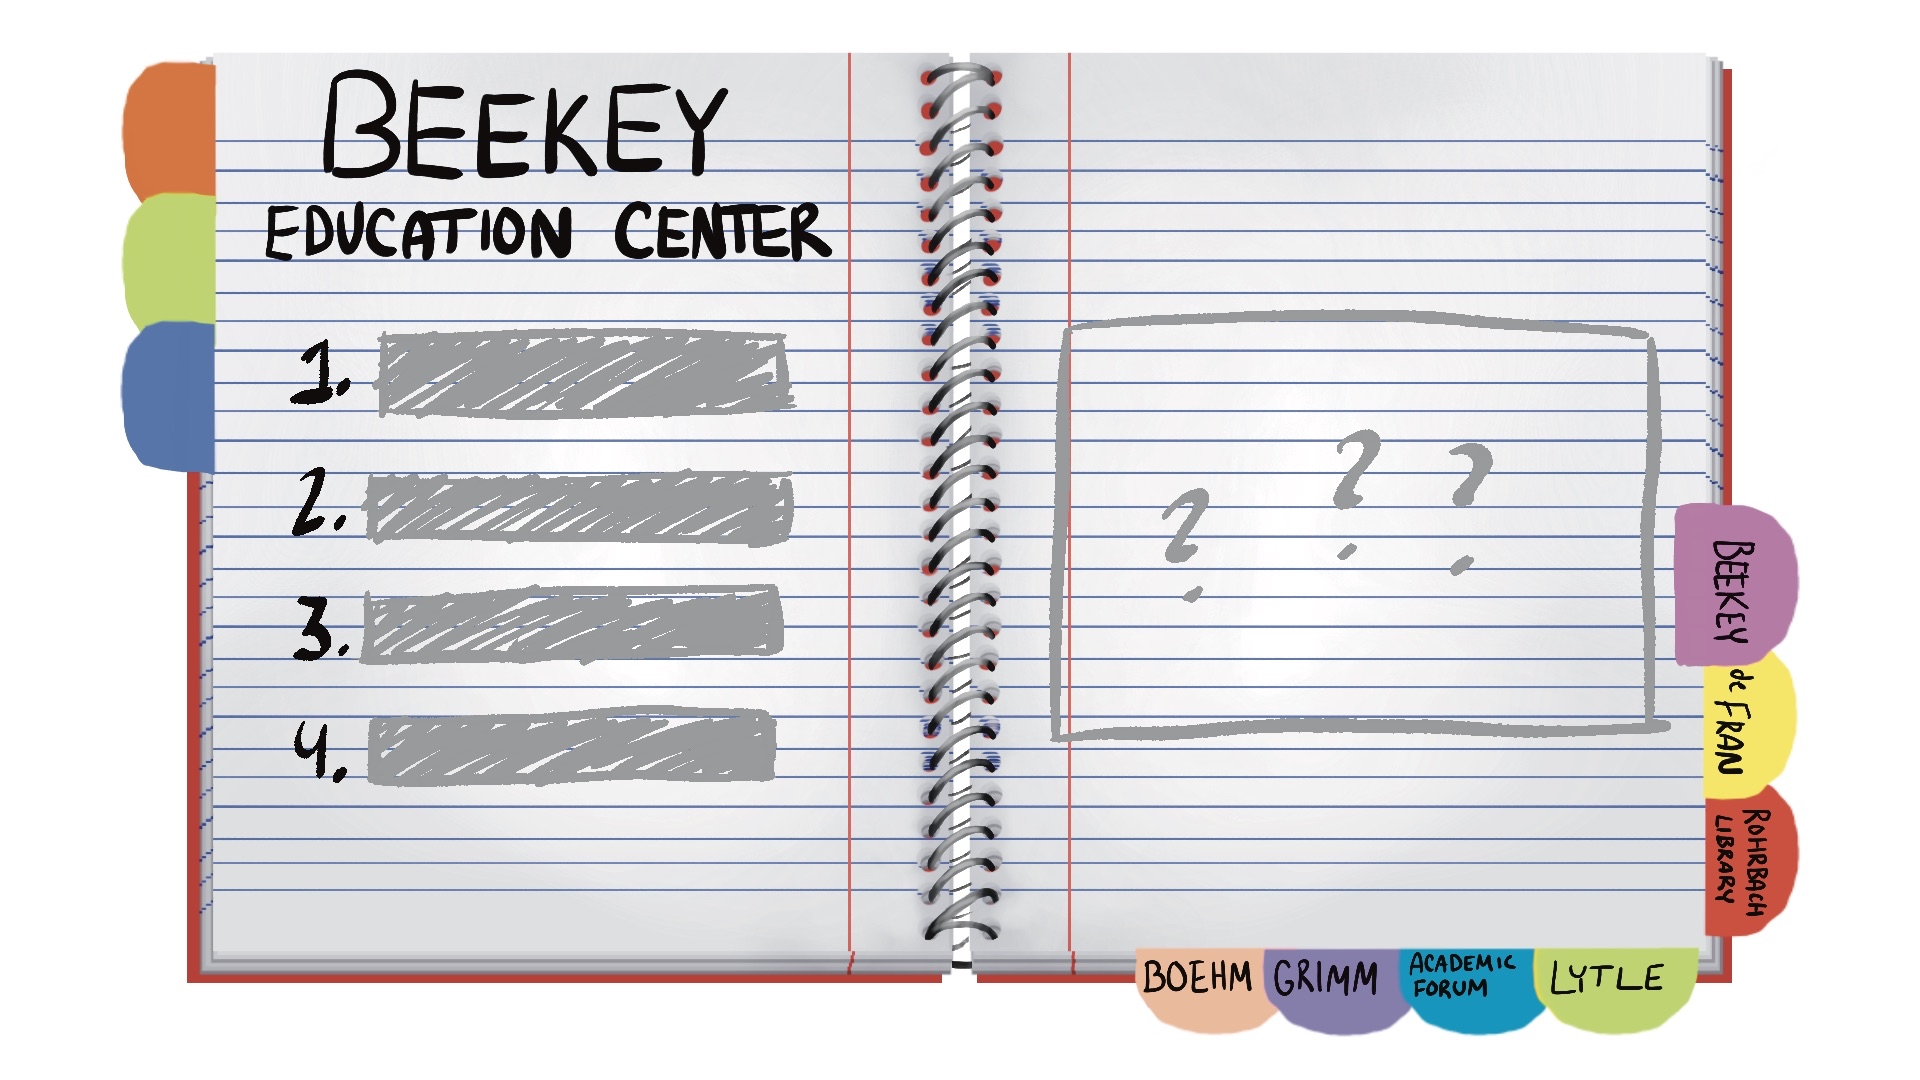 BEEKEY
EDUCATION CENTER
1.
2.
3.
4.
? ? ?
BEEKEY
de FRAN
ROHRBACH
LIBRARY
BOEHM
GRIMM
ACADEMIC
FORUM
LYTLE